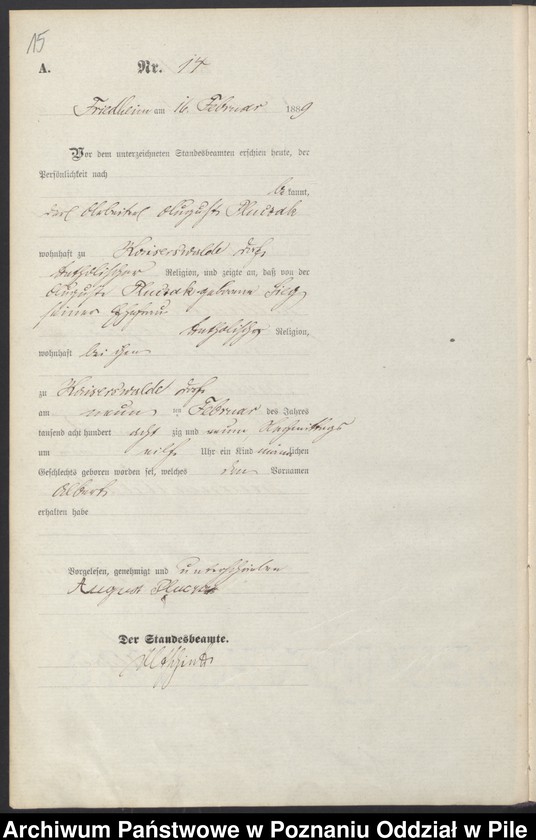 15
A. Nr. 14
Friedheim am 16. Februar 1889
Vor dem unterzeichneten Standesbeamten erschien heute, der
Persönlichkeit nach
be kannt,
der Arbeiter August
wohnhaft zu Kaiserswalde Dorf
katholischer Religion, und zeigte an, daß von der
Auguste geborene
seiner Ehefrau
katholischer Religion,
wohnhaft bei ihm
zu Kaiserswalde Dorf
am neun ten Februar des Jahres
tausend acht hundert acht zig und neun, Nachmittags
um elf Uhr ein Kind männlichen
Geschlechts geboren worden sei, welches den Vornamen
Albert
erhalten habe
Vorgelesen, genehmigt und unterschrieben
August
Der Standesbeamte.
Archiwum Państwowe w Poznaniu Oddział w Pile